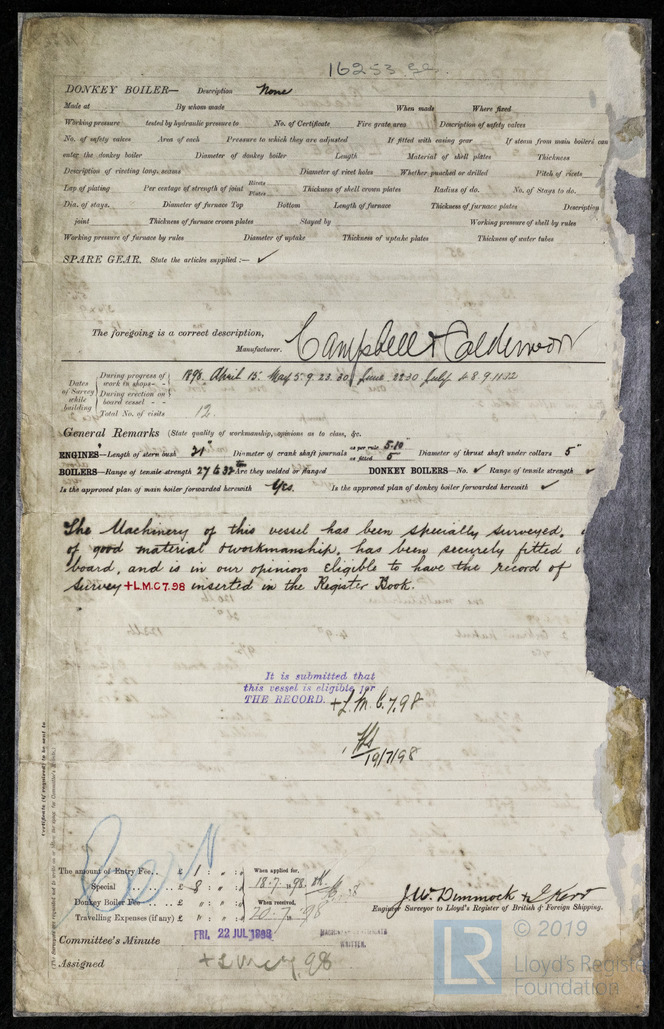 16253
DONKEY BOILER— Description None
Made at By whom made When made Where fixed
Working pressure tested by hydraulic pressure to No. of Certificate Fire grate area Description of safety valves
No. of safety valves Area of each Pressure to which they are adjusted If fitted with easing gear If steam from main boilers can
enter the donkey boiler Diameter of donkey boiler Length Material of shell plates Thickness
Description of riveting long. seams Diameter of rivet holes Whether punched or drilled Pitch of rivets
Lap of plating Per centage of strength of joint Rivets Plates Thickness of shell crown plates Radius of do. No. of Stays to do.
Dia. of stays. Diameter of furnace Top Bottom Length of furnace Thickness of furnace plates Description
joint Thickness of furnace crown plates Stayed by Working pressure of shell by rules
Working pressure of furnace by rules Diameter of uptake Thickness of uptake plates Thickness of water tubes
SPARE GEAR. State the articles supplied :— ✓
The foregoing is a correct description,
Manufacturer. Campbell & Calderwood
Dates of Survey while building
During progress of work in shops - - 1898. April 15. May 5. 9. 23. 30 June 22 30 July 4 8. 9. 11 12
During erection on board vessel - -
Total No. of visits 12.
General Remarks (State quality of workmanship, opinions as to class, &c.
ENGINES—Length of stern bush 21" Diameter of crank shaft journals as per rule 5.10" as fitted 5 Diameter of thrust shaft under collars 5"
BOILERS—Range of tensile strength 27 to 32 Tons Are they welded or flanged DONKEY BOILERS—No. ✓ Range of tensile strength ✓
Is the approved plan of main boiler forwarded herewith Yes. Is the approved plan of donkey boiler forwarded herewith ✓
The Machinery of this vessel has been specially surveyed,
of good material & workmanship, has been securely fitted
board, and is in our opinion eligible to have the record of
Survey +L.M.C 7.98 inserted in the Register Book.
It is submitted that
this vessel is eligible for
THE RECORD. +L.M.C. 7.98
19/7/98
Certificate (if required) to be sent to
The amount of Entry Fee.. £ 1 : " : "
Special .. .. £ 8 : " : "
Donkey Boiler Fee .. .. £ " : " : "
Travelling Expenses (if any) £ " : " : "
When applied for,
18.7.1898
When received,
20.7.1898
J. W. Dimmock & J. Kerr
Engineer Surveyor to Lloyd's Register of British & Foreign Shipping.
Committee's Minute FRI. 22 JUL 1898
MACHINERY CERTIFICATE
WRITTEN.
Assigned + L M C 7.98
© 2019
LR
Lloyd's Register
Foundation